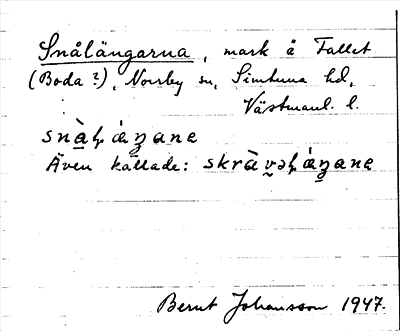 Snålängarna, mark å Fallet
(Boda?), Norrby sn, Simtuna hd,
Västmanl. l.
Även kallade:
Bernt Johansson 1947.